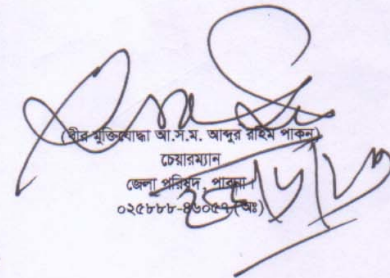 (বীর মুক্তিযোদ্ধা আ.স.ম. আব্দুর রহিম পাকন)
চেয়ারম্যান
জেলা পরিষদ, পাবনা।
০২৫৮৮৮-৪৬০৫৭(অঃ)